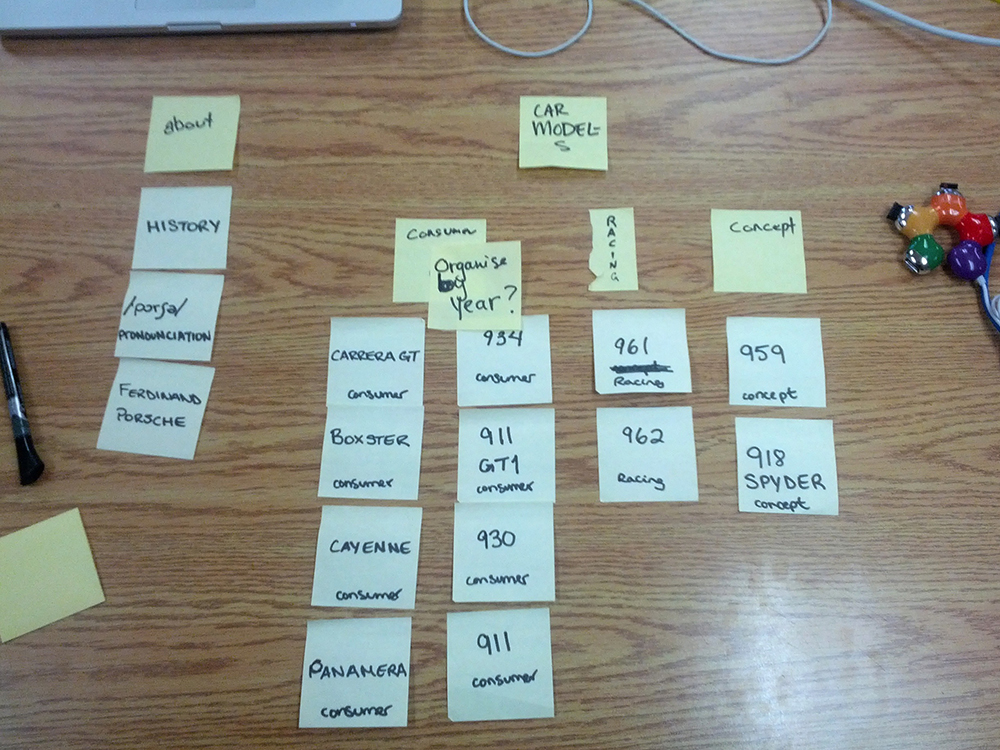 about
HISTORY
/porʃə/
PRONOUNCIATION
FERDINAND
PORSCHE
CAR
MODEL-
S
Consumer
Organise
by
year?
RACING
Concept
CARRERA GT
consumer
BOXSTER
consumer
CAYENNE
consumer
PANAMERA
consumer
934
consumer
911
GT1
consumer
930
consumer
911
consumer
961
Racing
962
Racing
959
concept
918
SPYDER
concept